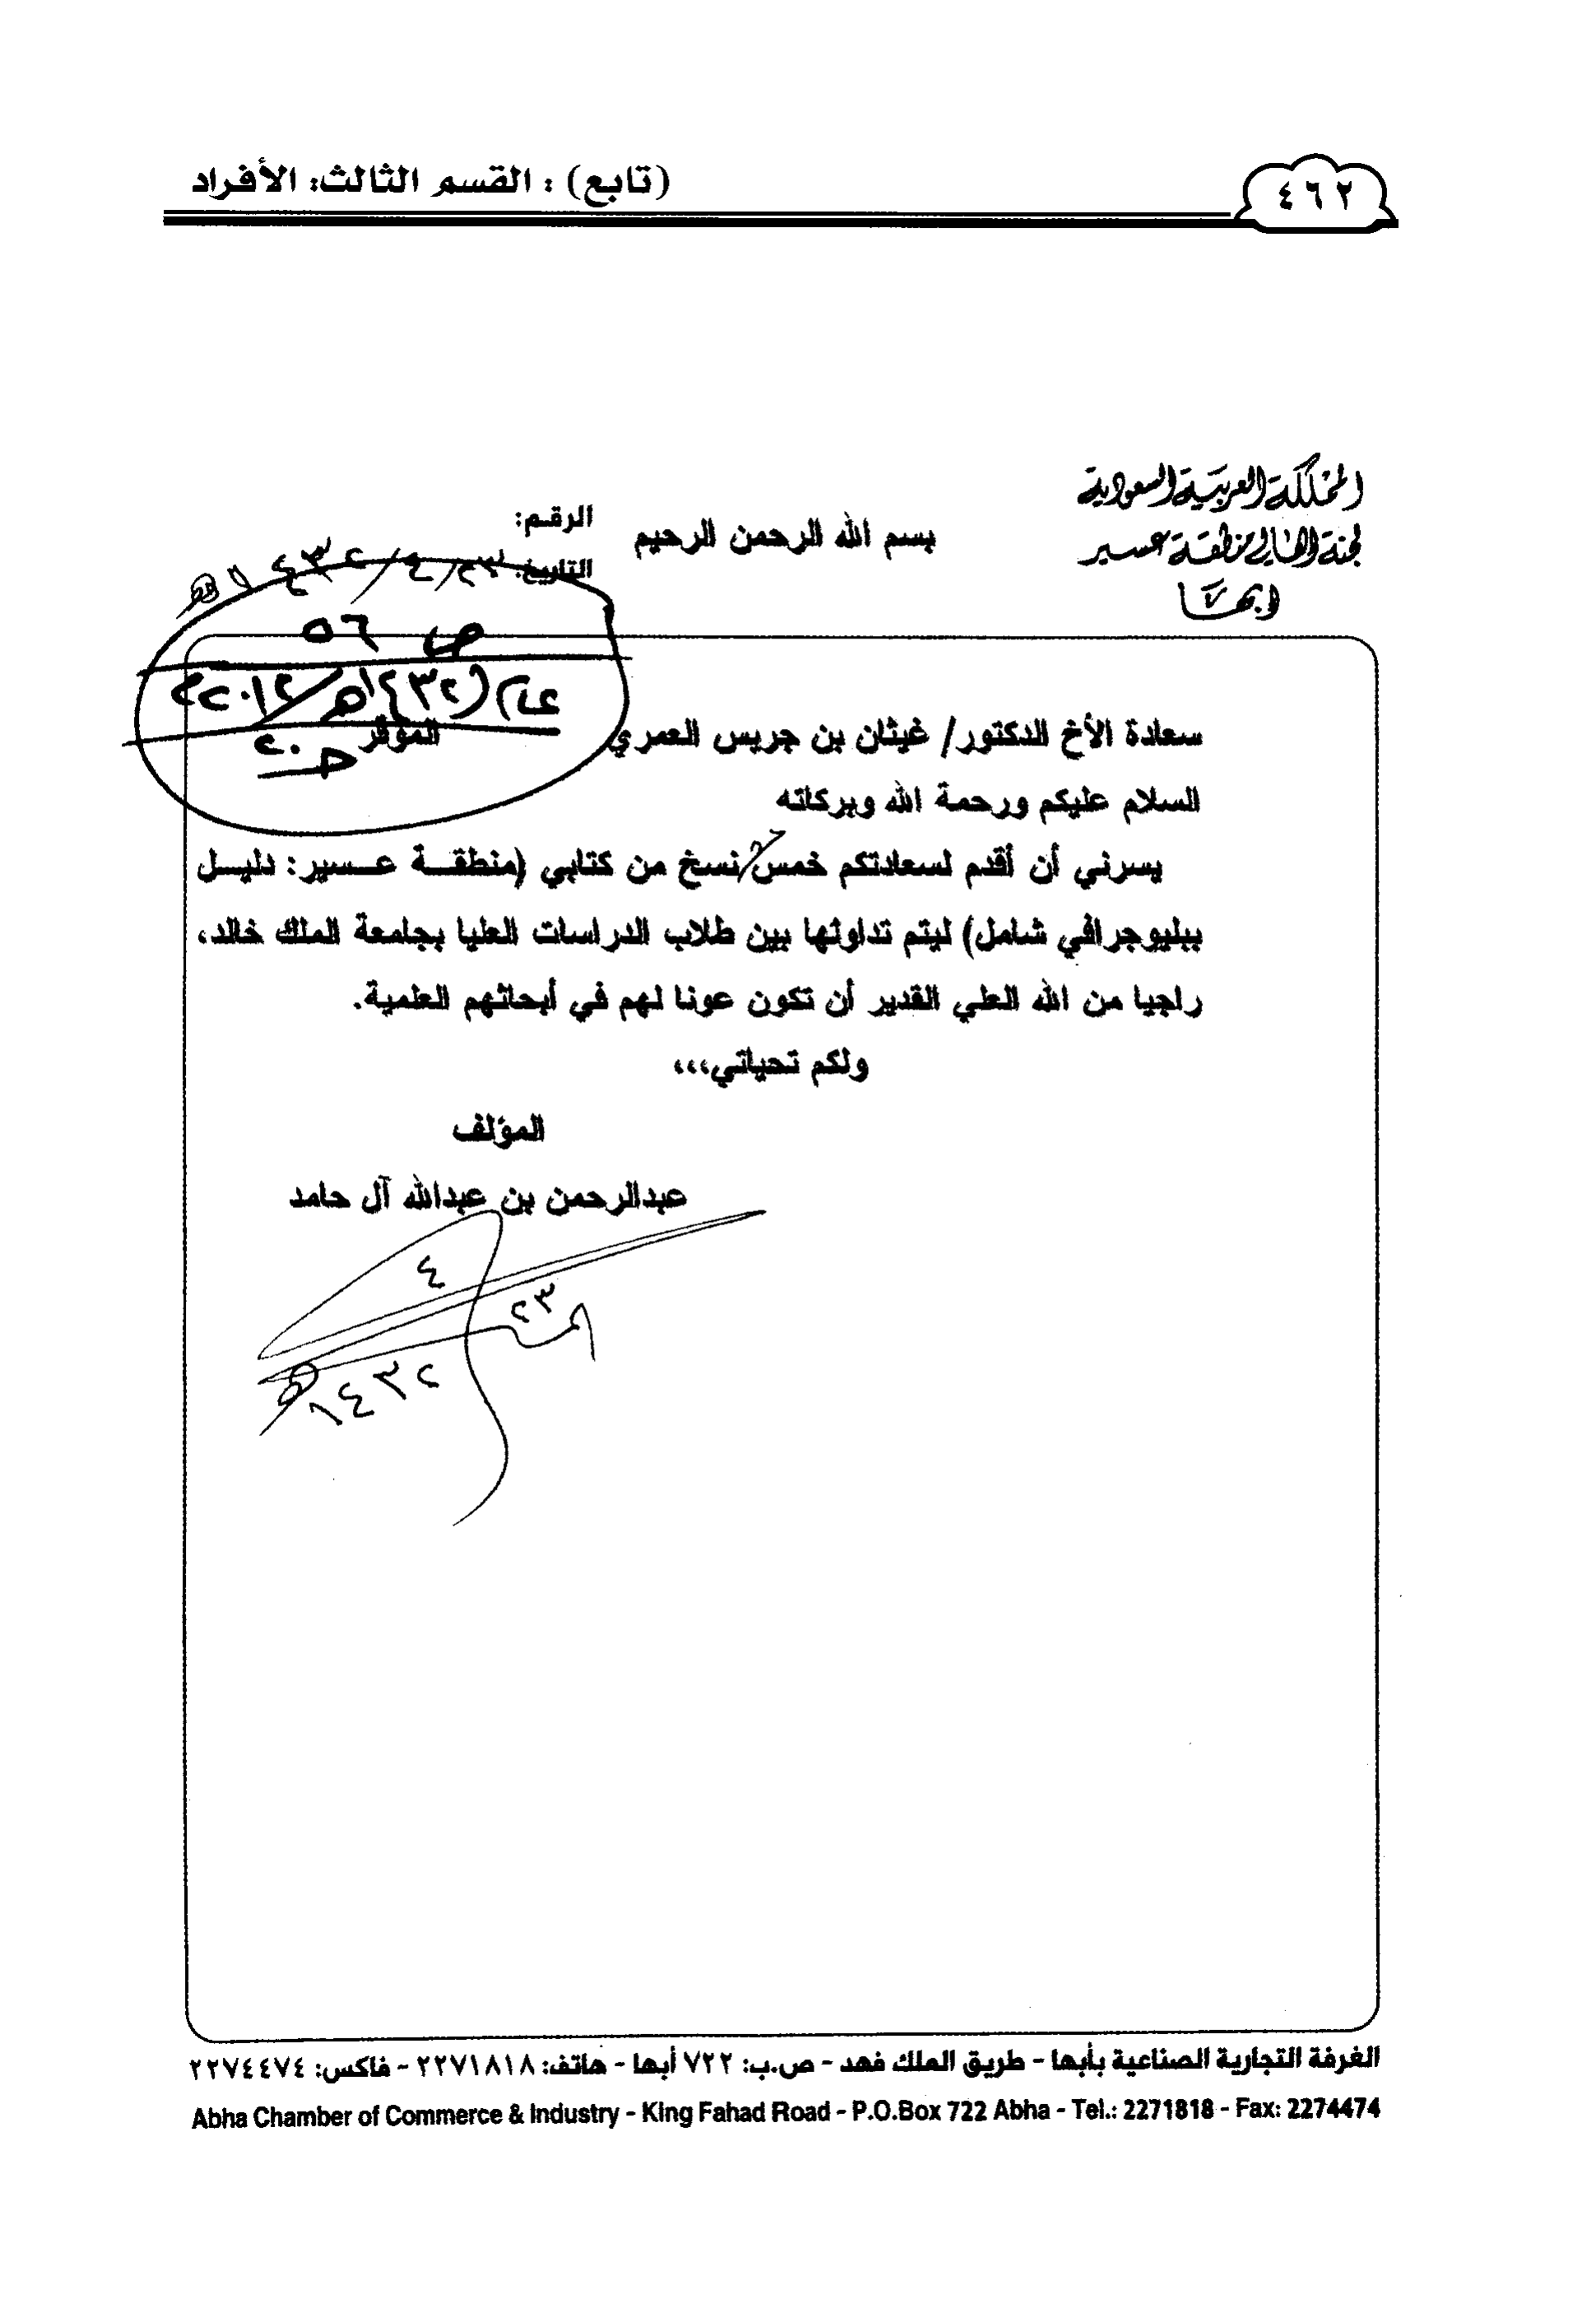 ٤٦٢
(تابع) : القسم الثالث: الأفراد
المملكة العربية السعودية
لجنة اهالي منطقة عسير
ابها
بسم الله الرحمن الرحيم
الرقم:
التاريخ: ٢٣/٤/١٤٣٢هـ
ص ٥٦
عام (١٤٣٢هـ/٢٠١٢م)
ح٢٠
سعادة الأخ الدكتور/ غيثان بن جريس العمري الموقر
السلام عليكم ورحمة الله وبركاته
يسرني أن أقدم لسعادتكم خمس نسخ من كتابي (منطقة عسير: دليل
ببليوجرافي شامل) ليتم تداولها بين طلاب الدراسات العليا بجامعة الملك خالد،
راجيا من الله العلي القدير أن تكون عونا لهم في أبحاثهم العلمية.
ولكم تحياتي،،،
المؤلف
عبدالرحمن بن عبدالله آل حامد
٢٣
٤
١٤٣٢هـ
الغرفة التجارية الصناعية بأبها - طريق الملك فهد - ص.ب: ٧٢٢ أبها - هاتف: ٢٢٧١٨١٨ - فاكس: ٢٢٧٤٤٧٤
Abha Chamber of Commerce & Industry - King Fahad Road - P.O.Box 722 Abha - Tel.: 2271818 - Fax: 2274474